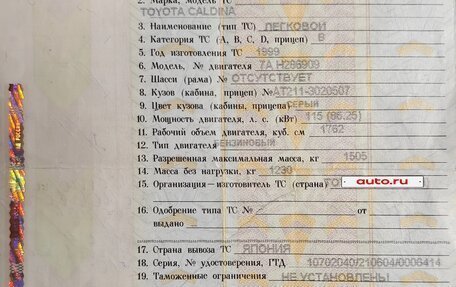 2. Марка, модель ТС
TOYOTA CALDINA
3. Наименование (тип ТС) ЛЕГКОВОЙ
4. Категория ТС (А, В, С, D, прицеп) В
5. Год изготовления ТС 1999
6. Модель, № двигателя 7A H286909
7. Шасси (рама) № ОТСУТСТВУЕТ
8. Кузов (кабина, прицеп) № AT211-3020507
9. Цвет кузова (кабины, прицепа) СЕРЫЙ
10. Мощность двигателя, л. с. (кВт) 115 (86.25)
11. Рабочий объем двигателя, куб. см 1762
12. Тип двигателя БЕНЗИНОВЫЙ
13. Разрешенная максимальная масса, кг 1505
14. Масса без нагрузки, кг 1230
15. Организация—изготовитель ТС (страна) auto.ru
16. Одобрение типа ТС № от
выдано
17. Страна вывоза ТС ЯПОНИЯ
18. Серия, № удостоверения, ГТД 10702040/210604/0006414
19. Таможенные ограничения НЕ УСТАНОВЛЕНЫ